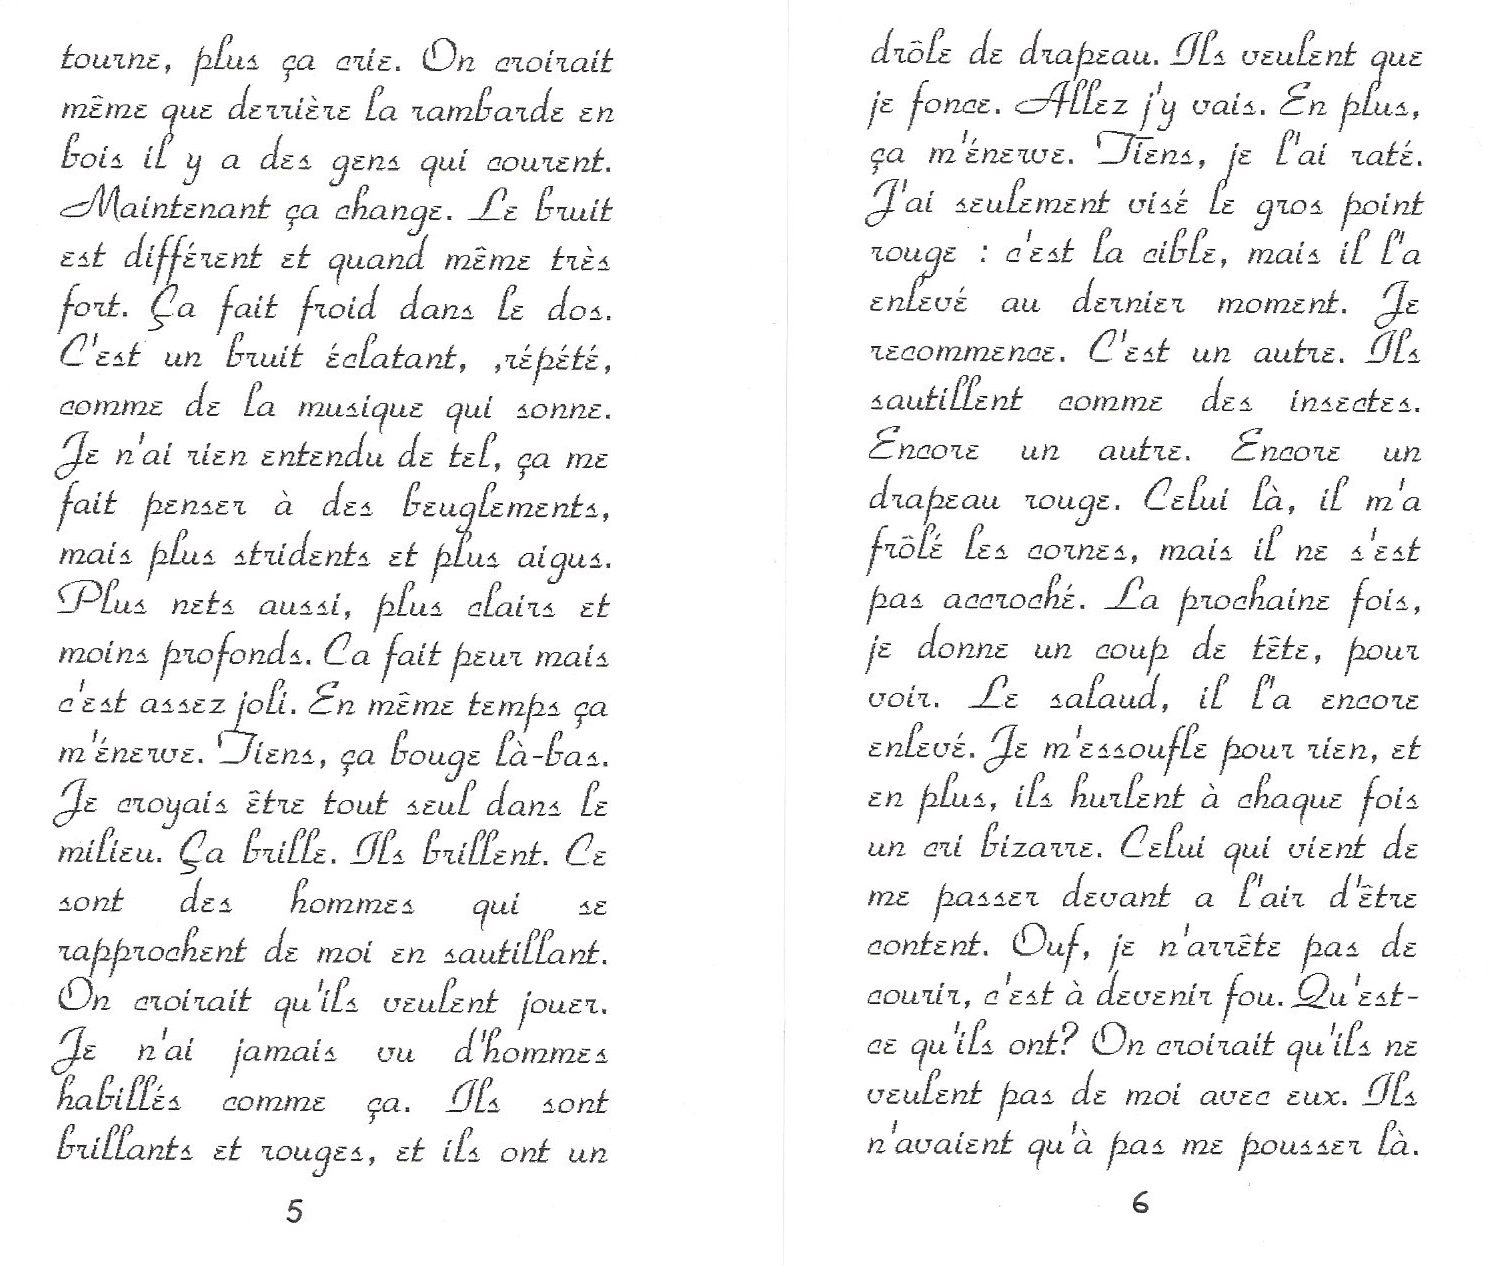 tourne, plus ça crie. On croirait
même que derrière la rambarde en
bois il y a des gens qui courent.
Maintenant ça change. Le bruit
est différent et quand même très
fort. Ça fait froid dans le dos.
C'est un bruit éclatant, ,répété,
comme de la musique qui sonne.
Je n'ai rien entendu de tel, ça me
fait penser à des beuglements,
mais plus stridents et plus aigus.
Plus nets aussi, plus clairs et
moins profonds. Ca fait peur mais
c'est assez joli. En même temps ça
m'énerve. Tiens, ça bouge là-bas.
Je croyais être tout seul dans le
milieu. Ça brille. Ils brillent. Ce
sont des hommes qui se
rapprochent de moi en sautillant.
On croirait qu'ils veulent jouer.
Je n'ai jamais vu d'hommes
habillés comme ça. Ils sont
brillants et rouges, et ils ont un
5
drôle de drapeau. Ils veulent que
je fonce. Allez j'y vais. En plus,
ça m'énerve. Tiens, je l'ai raté.
J'ai seulement visé le gros point
rouge : c'est la cible, mais il l'a
enlevé au dernier moment. Je
recommence. C'est un autre. Ils
sautillent comme des insectes.
Encore un autre. Encore un
drapeau rouge. Celui là, il m'a
frôlé les cornes, mais il ne s'est
pas accroché. La prochaine fois,
je donne un coup de tête, pour
voir. Le salaud, il l'a encore
enlevé. Je m'essoufle pour rien, et
en plus, ils hurlent à chaque fois
un cri bizarre. Celui qui vient de
me passer devant a l'air d'être
content. Ouf, je n'arrête pas de
courir, c'est à devenir fou. Qu'est-
ce qu'ils ont? On croirait qu'ils ne
veulent pas de moi avec eux. Ils
n'avaient qu'à pas me pousser là.
6